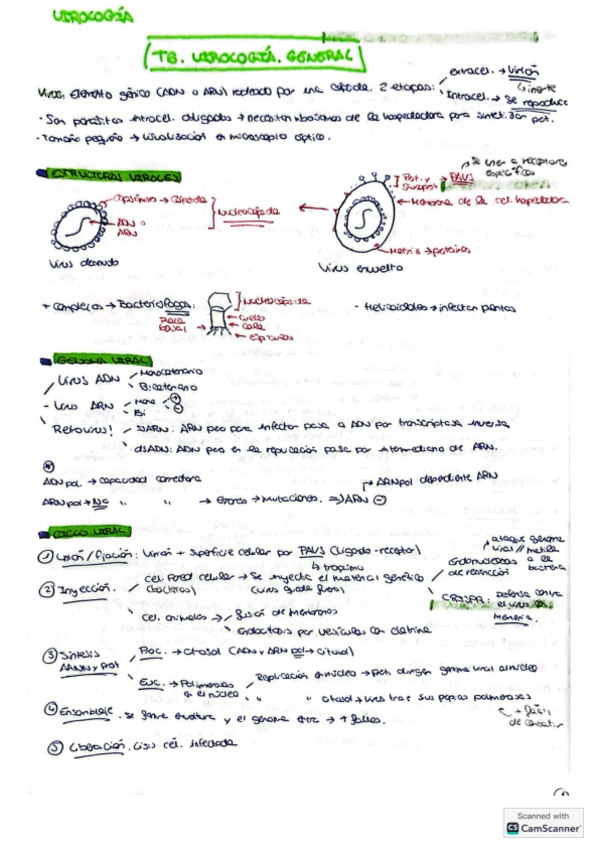 VIROLOGÍA
T8. VIROLOGÍA GENERAL
Virus: Elemento génico (ADN o ARN) rodeado por una cápside. 2 etapas:
extracel. → Virión
↳ inerte
Intracel. → Se reproduce
- Son parásitos intracel. obligados → necesitan ribosomas de la hospedadora para sintet. sus pot.
- Tamaño pequeño → visualización en microscopio óptico.
ESTRUCTURAS VIRALES
Capsómero → Cápside
Nucleocápside
ADN o ARN
Virus desnudo
Prot. y
→ PAVS
→ Se unen a receptores específicos
Membrana de la cel. hospedadora
Matriz → proteínas
Virus envuelto
+ Complejos → Bacteriófagos:
Nucleocápside
cuello
cola
Placa basal
- Helicoidales → infectan plantas
GENOMA VIRAL
Virus ADN
Monocatenario
Bicatenario
- Virus ARN
Mono
+
-
Bi
Retrovirus!
ssARN: ARN pero para infectar pasa a ADN por transcriptasa inversa
dsADN: ADN pero en la replicación pasa por intermediario de ARN.
ADN pol. → capacidad correctora
ARN pol → No " " → Errores → Mutaciones. ⇒ ARN -
→ ARNpol dependiente ARN
CICLO VIRAL
① Unión/fijación: Virión + superficie celular por PAVS (ligando-receptor)
↳ tropismo
② Inyección.
cel. Pared celular → Se inyecta el material genético
(virus queda fuera)
Endonucleasas de restricción
→ ataque genoma viral
a la bacteria
CRISPR: Defensa contra el virus con memoria
Cel. animales → fusión de membranas
Endocitosis por vesículas con clatrina
③ Síntesis AANN y prot
Proc. → citosol (ADN y ARN pol → citosol)
Euc. → Polimerasas en el núcleo
Replicación en núcleo → prot. dirigen genoma viral al núcleo
" " citosol → virus trae sus propias polimerasas
④ Ensamblaje. se forma estructura y el genoma entra → + fallos.
⑤ Liberación. Lisis cél. infectada
Scanned with
CS CamScanner